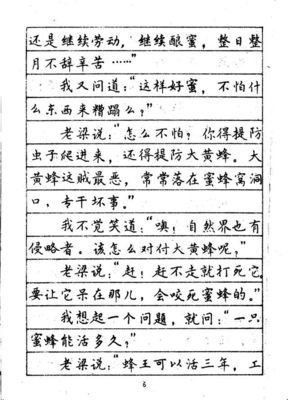 还是继续劳动，继续酿蜜，整日整
月不辞辛苦……”
我又问道：“这样好蜜，不怕什
么东西来糟蹋么？”
老梁说：“怎么不怕？你得提防
虫子爬进来，还得提防大黄蜂。大
黄蜂这贼最恶，常常落在蜜蜂窝洞
口，专干坏事。”
我不觉笑道：“噢！自然界也有
侵略者。该怎么对付大黄蜂呢？”
老梁说：“赶！赶不走就打死它。
要让它呆在那儿，会咬死蜜蜂的。”
我想起一个问题，就问：“一只
蜜蜂能活多久？”
老梁说：“蜂王可以活三年，工
6